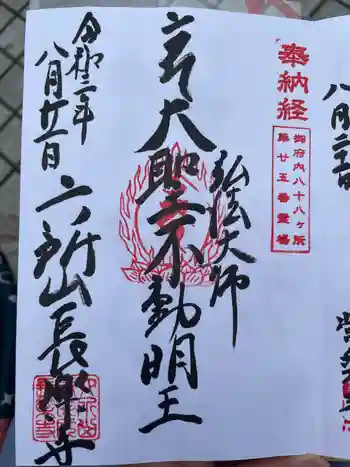 奉納経
御府内八十八ヶ所
第廿五番霊場
弘法大師
大聖不動明王
令和二年
八月廿二日
六所山長樂寺